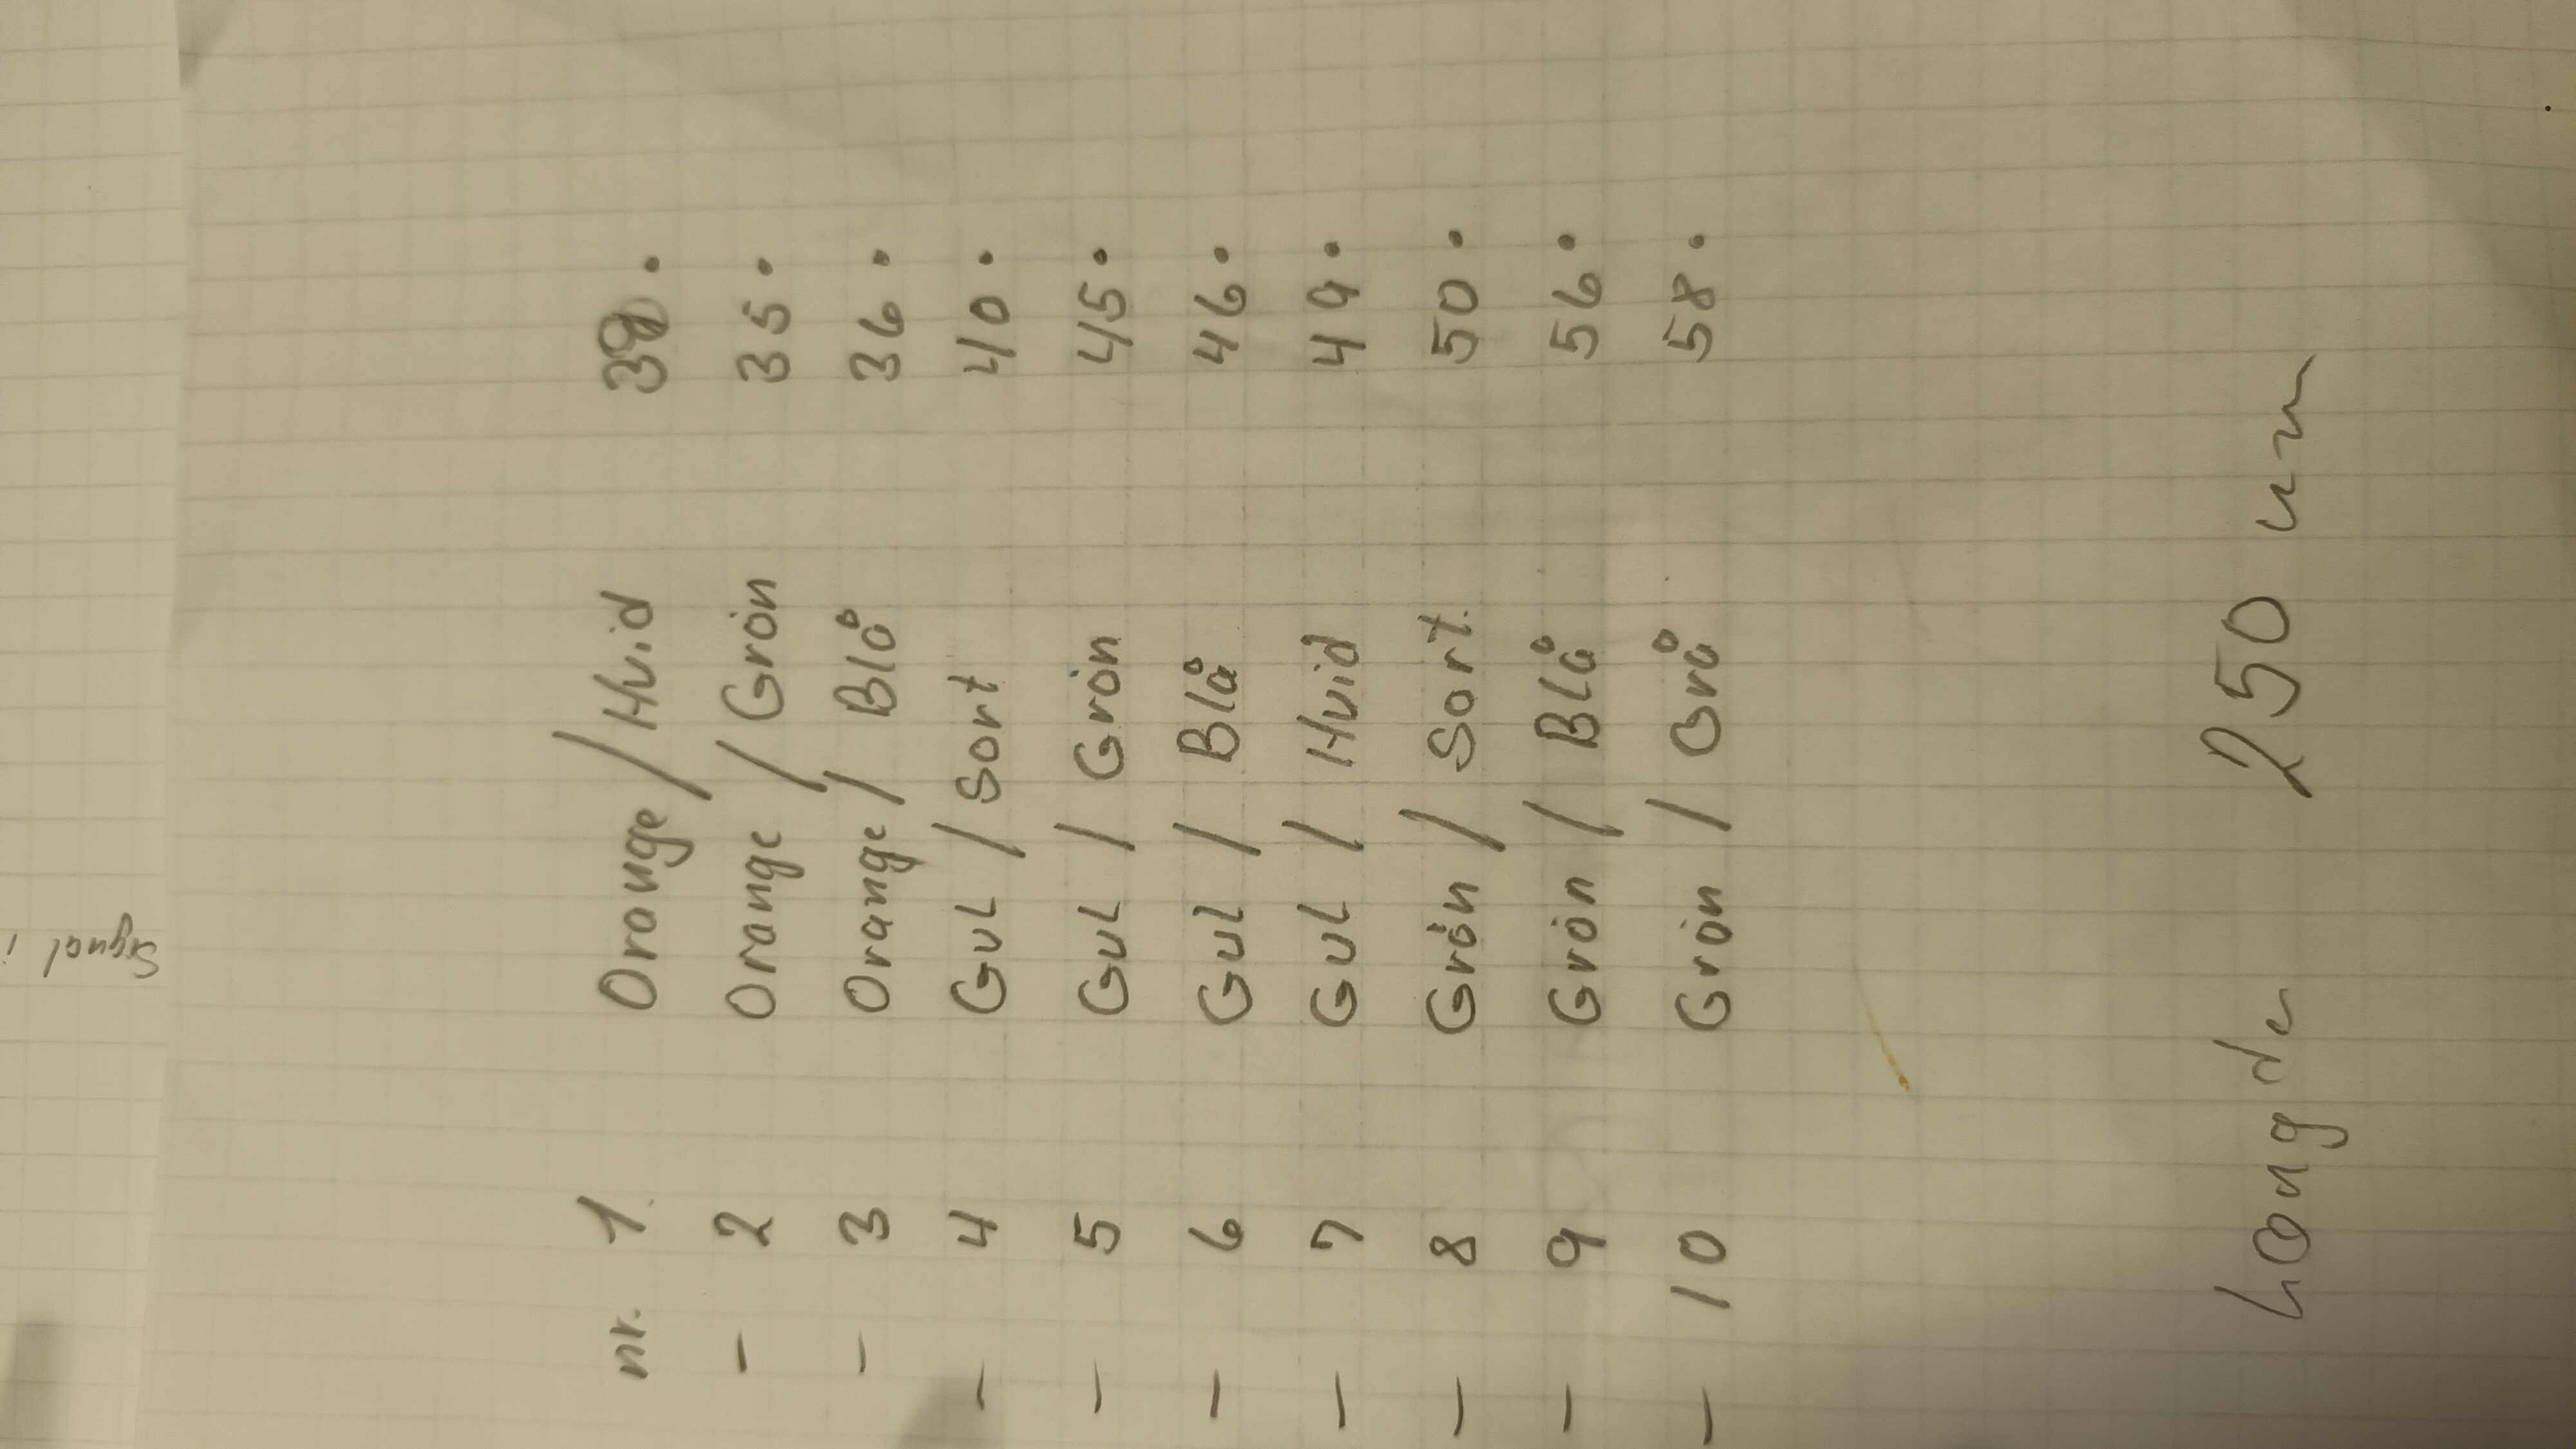 Signal i
nr. 1 Orange / Hvid 39.
- 2 Orange / Grön 35.
- 3 Orange / Blå 36.
- 4 Gul / Sort 40.
- 5 Gul / Grön 45.
- 6 Gul / Blå 46.
- 7 Gul / Hvid 49.
- 8 Grön / Sort. 50.
- 9 Grön / Blå 56.
- 10 Grön / Grå 58.
Længde 250 mm